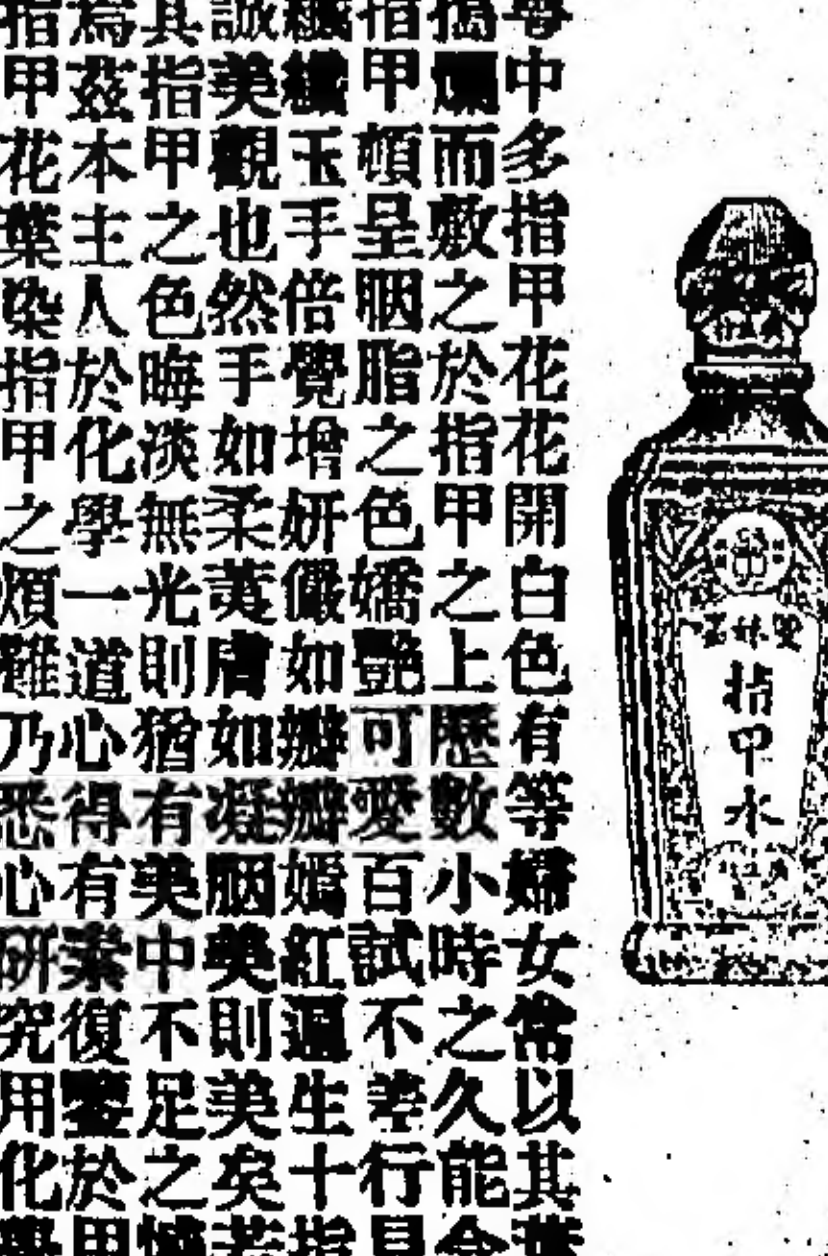 雙妹嘜
指甲水
粵中多指甲花花開白色有等婦女常以其葉
搗爛而敷之於指甲之上歷數小時之久能令
指甲頓呈胭脂之色嬌艷可愛百試不差行見
纖纖玉手倍覺增妍儼如瓣瓣嫣紅遍生十指
誠美觀也然手如柔荑膚如凝胭美則美矣若
其指甲之色晦淡無光則猶有美中不足之憾
焉茲本主人於化學一道心得有素復鑒於用
指甲花葉染指甲之煩難乃悉心研究用化學